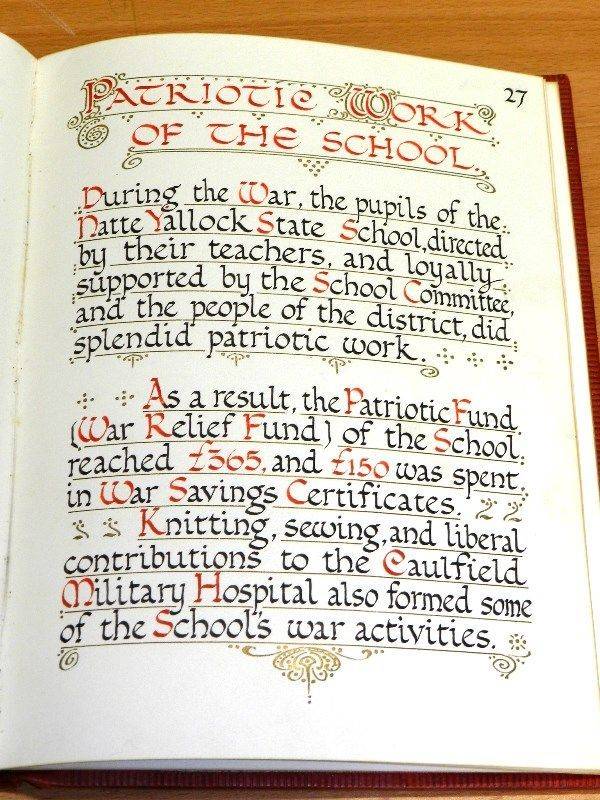 27
PATRIOTIC WORK
OF THE SCHOOL.
During the War, the pupils of the
Natte Yallock State School, directed
by their teachers, and loyally
supported by the School Committee,
and the people of the district, did
splendid patriotic work.
As a result, the Patriotic Fund
(War Relief Fund) of the School
reached £365, and £150 was spent
in War Savings Certificates.
Knitting, sewing, and liberal
contributions to the Caulfield
Military Hospital also formed some
of the School's war activities.